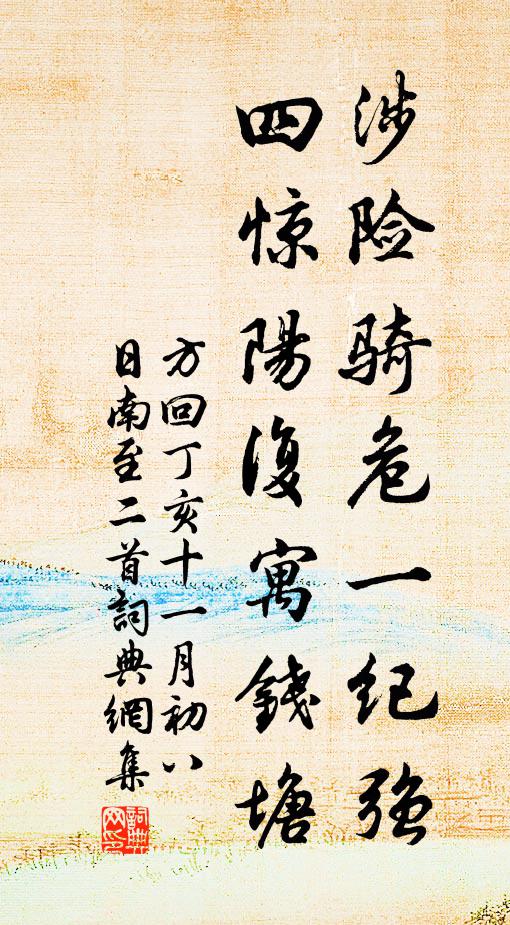 涉险骑危一纪强
四惊陽復寓錢塘
方回丁亥十一月初八
日南至二首詞典網集
詞典網印